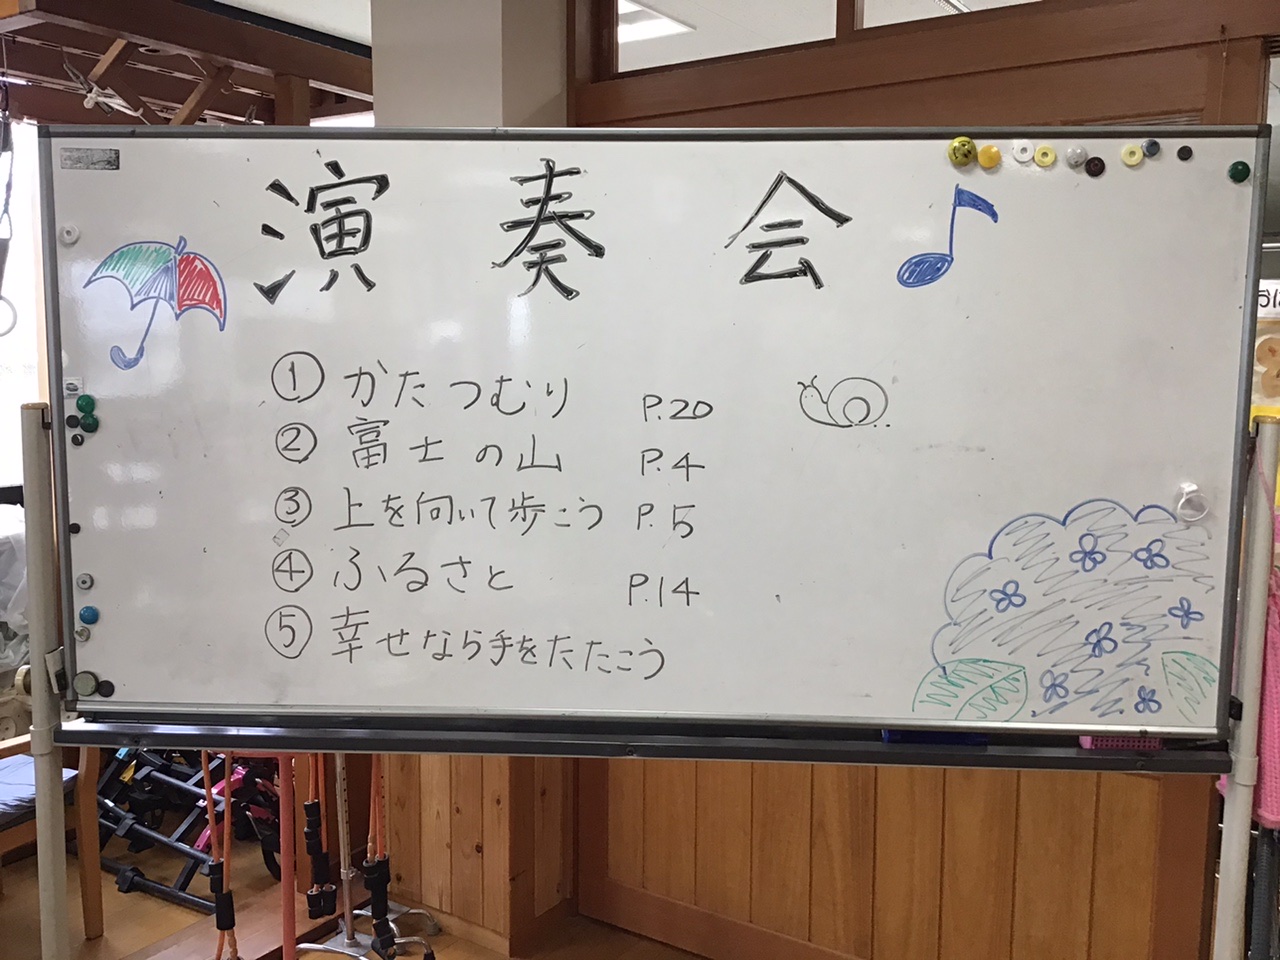 演奏会
① かたつむり P.20
② 富士の山 P.4
③ 上を向いて歩こう P.5
④ ふるさと P.14
⑤ 幸せなら手をたたこう